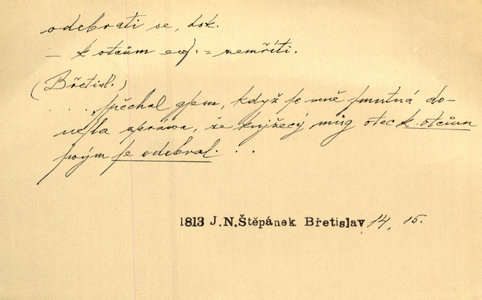 odebrati se, dok.
– k otcům euf. = zemříti.
(Břetisl.)
...., spěchal gsem, když se mně smutná do-
nesla zpráwa, že knjžecý můg otec k otcům
swým se odebral. . .
1813 J.N.Štěpánek Břetislav 14, 15.